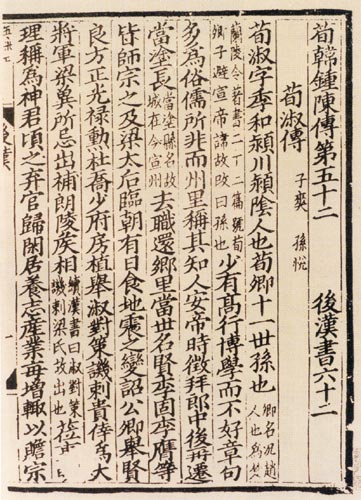 荀韓鍾陳傳第五十二　後漢書六十二
荀淑傳　子爽　孫悅
荀淑字季和潁川潁陰人也荀卿十一世孫也卿名况趙人也為楚
蘭陵令著書二十二篇號荀卿子避宣帝諱故改曰孫也少有高行博學而不好章句
多為俗儒所非而州里稱其知人安帝時徵拜郎中後再遷
當塗長當塗縣名故城在今宣州去職還鄉里當世名賢李固李膺等
皆師宗之及梁太后臨朝有日食地震之變詔公卿舉賢
良方正光禄勳杜喬少府房植舉淑對策譏刺貴倖為大
將軍梁冀所忌出補朗陵侯相續漢書曰淑對策譏刺梁氏故出也莅事
理稱為神君頃之弃官歸閑居養志產業每增輒以贍宗